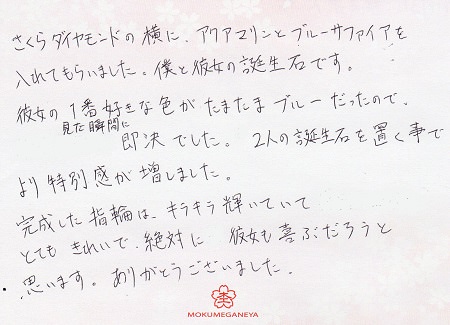 さくらダイヤモンドの横に、アクアマリンとブルーサファイアを
入れてもらいました。僕と彼女の誕生石です。
彼女の1番好きな色がたまたまブルーだったので、
見た瞬間に
即決でした。2人の誕生石を置く事で
より特別感が増しました。
完成した指輪は、キラキラ輝いていて
とてもきれいで、絶対に彼女も喜ぶだろうと
思います。ありがとうございました。
MOKUMEGANEYA